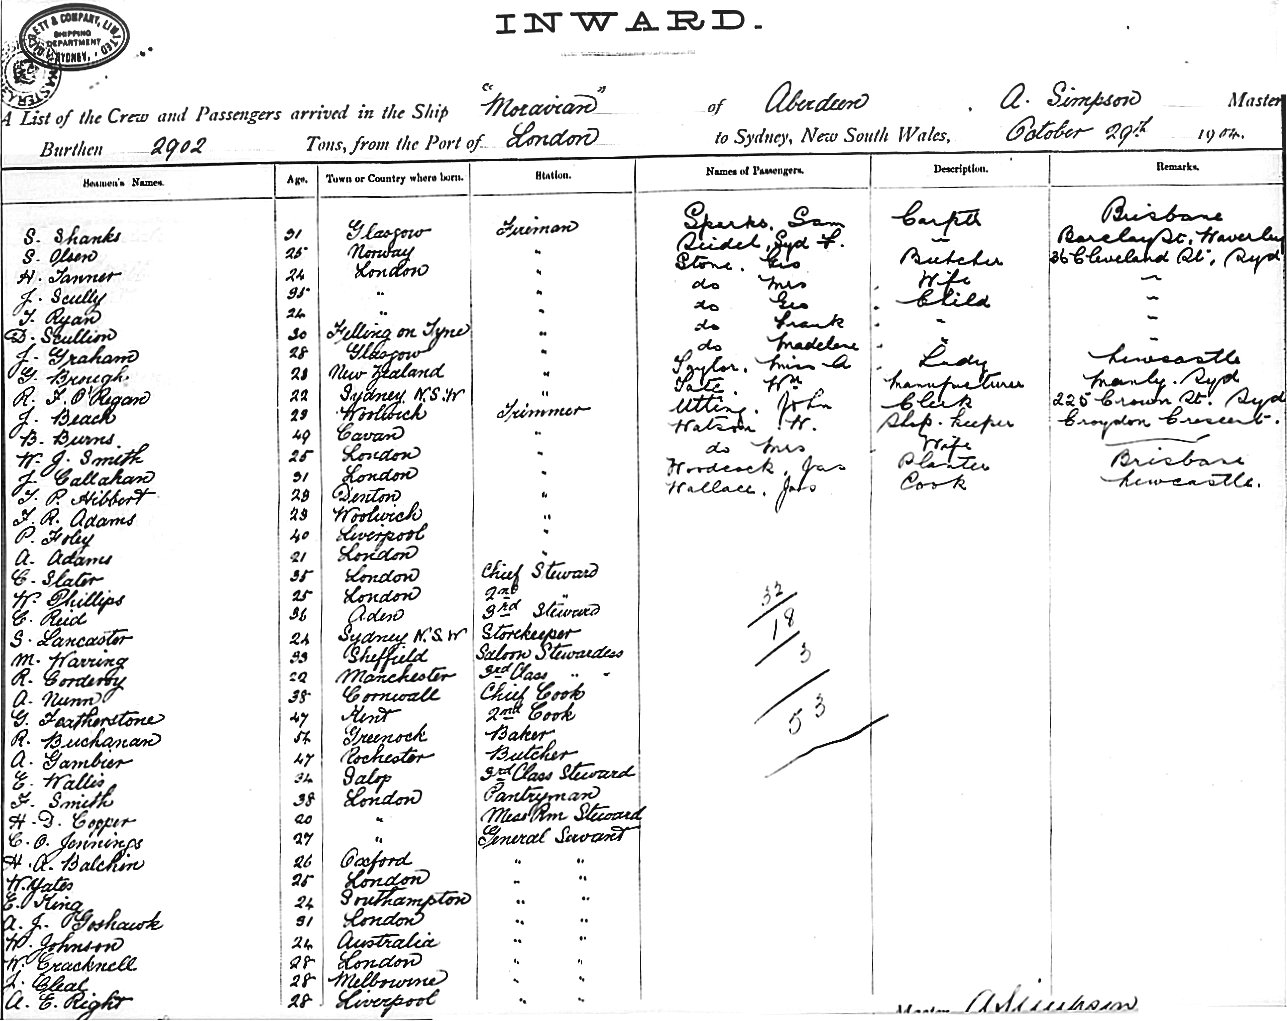 INWARD.
& COMPANY, LIMITED
SHIPPING
DEPARTMENT
SYDNEY.
A List of the Crew and Passengers arrived in the Ship "Moravian" of Aberdeen, A. Simpson Master
Burthen 2902 Tons, from the Port of London to Sydney, New South Wales, October 29th 1904.
Seamen's Names. Age. Town or Country where born. Station. Names of Passengers. Description. Remarks.
S. Shanks 31 Glasgow Fireman Sparks, Sam Carptr Brisbane
S. Olsen 25 Norway " Seidel, Syd F. " Barclay St, Waverley
H. Tanner 24 London " Stone, Geo Butcher 36 Cleveland St, Syd
J. Scully 35 " " do Mrs Wife "
T. Ryan 24 " " do Geo Child "
D. Scullion 30 Felling on Tyne " do Frank " "
J. Graham 28 Glasgow " do Madelene " "
G. Brough 28 New Zealand " Taylor, Miss A Lady Newcastle
R. F. O'Regan 22 Sydney N.S.W " Tate, Wm Manufacturer Manly. Syd
J. Beach 29 Woolwich Trimmer Utting, John Clerk 225 Crown St, Syd
B. Burns 49 Cavan " Watson W. Shop-keeper Croydon Crescent.
W. J. Smith 25 London " do Mrs Wife
J Callahan 31 London " Woodcock, Jas Planter Brisbane
T. P. Hibbert 29 Denton " Wallace, Jas Cook Newcastle.
F. R. Adams 29 Woolwich "
P. Foley 40 Liverpool "
A. Adams 21 London "
C. Slater 35 London Chief Steward
W. Phillips 25 London 2nd "
C. Reid 36 Aden 3rd Steward
S. Lancaster 24 Sydney N.S.W Storekeeper
M. Warring 33 Sheffield Saloon Stewardess
R. Corderoy 29 Manchester 3rd Class " "
A. Nunn 38 Cornwall Chief Cook
G. Featherstone 47 Kent 2nd Cook
R. Buchanan 54 Greenock Baker
A. Gambier 47 Rochester Butcher
E. Wallis 34 Salop 3rd Class Steward
F. Smith 38 London Pantryman
H. D. Cooper 20 " Mess Rm Steward
C. O. Jennings 27 General Servant
H. A. Balchin 26 Oxford " "
W. Yates 25 London " "
E. King 24 Southampton " "
A. J. Goshawk 31 London " "
W. Johnson 24 Australia " "
W. Cracknell 28 London " "
J. Cleal 28 Melbourne " "
A. E. Right 28 Liverpool " "
32
18
3
53
Master A Simpson